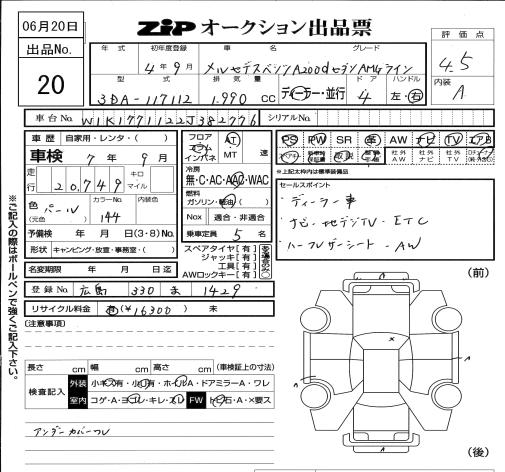 06月20日
出品No.
20
ZIP オークション出品票
評価点
4.5
内装
A
年式 初年度登録 車名 グレード
4年9月 メルセデスベンツA200dセダンAMGライン
型式 排気量 ドア ハンドル
3DA-177112 1.990 CC ディーラー・並行 4 左・右
車台No. W1K1771122J382776 シリアルNo.
車歴 自家用・レンタ・( )
車検 7年9月
走行 20,749 キロ マイル
色(元色) パール カラーNo. 144
予備検 年 月 日(3・8)No.
形状 キャンピング・放室・事務室・( )
名変期限 年 月 日迄
フロア コラム インパネ AT MT 速
冷房
無・C・AC・AAC・WAC
燃料
ガソリン・軽油( )
Nox 適合・非適合
乗車定員 5 名
スペアタイヤ[有]
ジャッキ[有]
工具[有]
AWロックキー[有]
PS PW SR 革 AW ナビ TV エアB
※上記太枠内は標準装備品
セールスポイント
ディーラー車
ナビ-地デジTV-ETC
ハーフレザーシート-AW
登録No. 広島 330 ま 1429
リサイクル料金 有(¥16300) 未
(注意事項)
長さ cm 幅 cm 高さ cm (車検証上の寸法)
検査記入
外装 小キズ有・小凹有・ホイルA・ドアミラーA・ワレ
室内 コゲ・A・ヨゴレ・キレ・スレ FW トビ石・A・×要ス
アンダーカバーワレ
(前)
(後)
※ご記入の際はボールペンで強くご記入下さい。